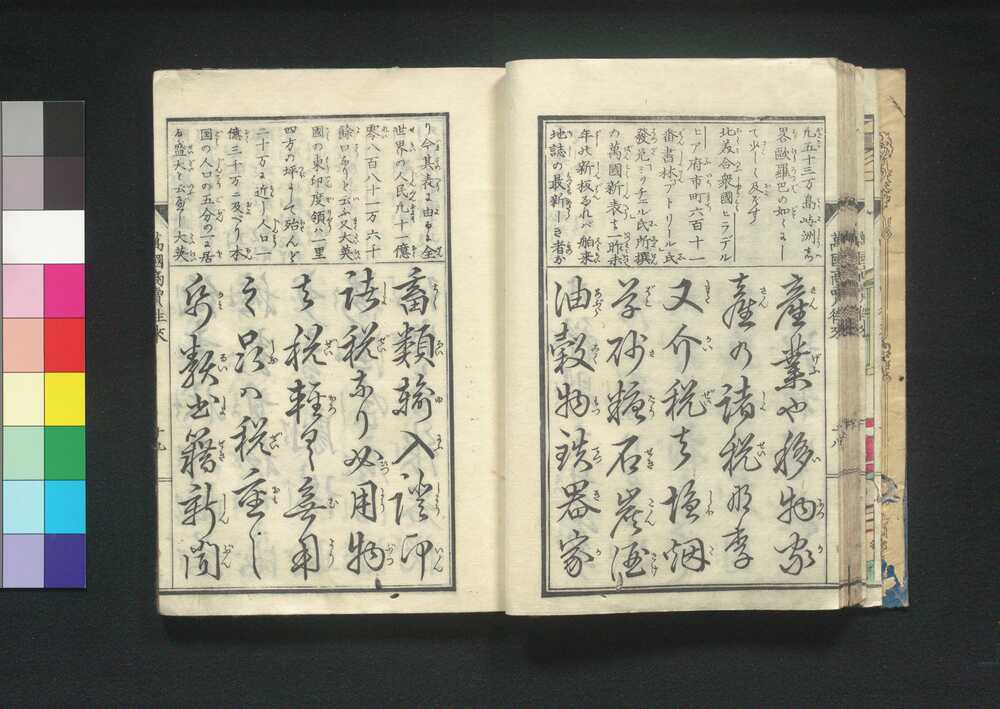 九五十三万島嶼洲ち
界歐羅巴の如くま
て少しく及ばす
北亜合衆國ヒラデル
ヒア府市町六百十一
番書林アトリール氏
發兌ミッチェル氏所撰
の萬國新表は昨未
年の新板なれバ舶来
地誌の最新しき者な
産業や移物家
産の諸税那李
又介税は塩烟
草砂糖石炭酒
油穀物鉄器家
り今其表に由るに全
世界の人民九十億
零八百八十一万六千
餘口ありと云ふ又大英
國の東印度領ハ一里
四方の坪にして殆んど
二十万に近し人口一
億三千万に及べり本
国の人口の五分の四に居
る盛大と云べし大英
畜類輸入證印
諸税なり必用物
は税軽く無用
之品ハ税重し
紙類書籍新聞
萬國商賣往来
十九